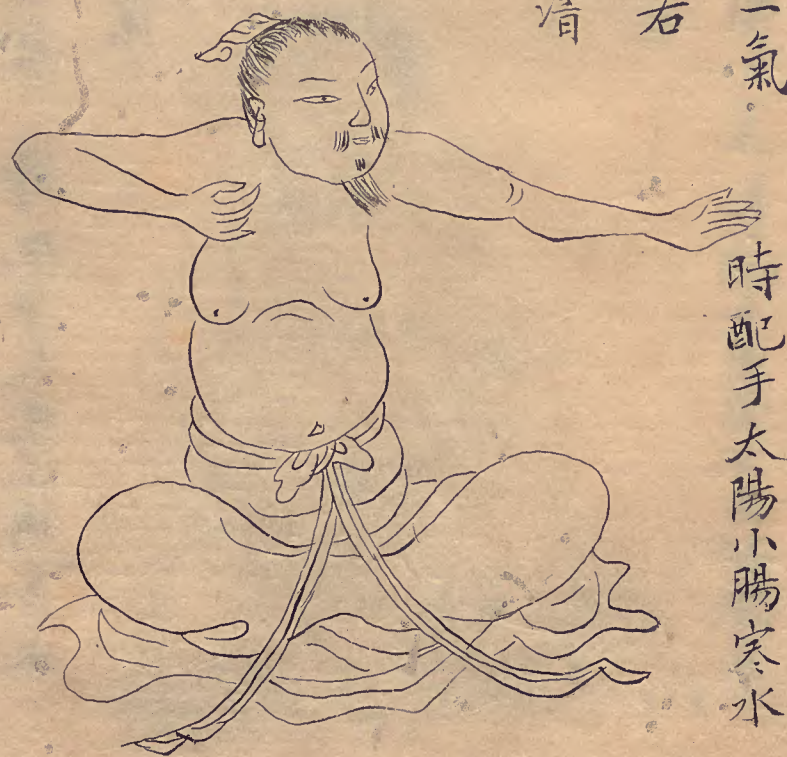 一氣
時配手太陽小腸寒水
右